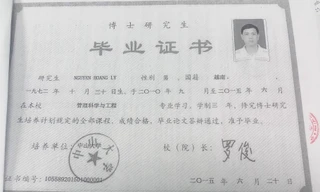 博士研究生
毕业证书
研究生 NGUYEN HOANG LY 性别 男，国籍 越南，
一九七二年 十月二十日生，于二〇一〇年 九月至二〇一五年 六月
在本校 管理科学与工程 专业学习，学制三年，修完博士研究
生培养计划规定的全部课程，成绩合格，毕业论文答辩通过，准予毕业。
培养单位： 校（院）长： 罗俊
证书编号：
二〇一五年 六月二十日